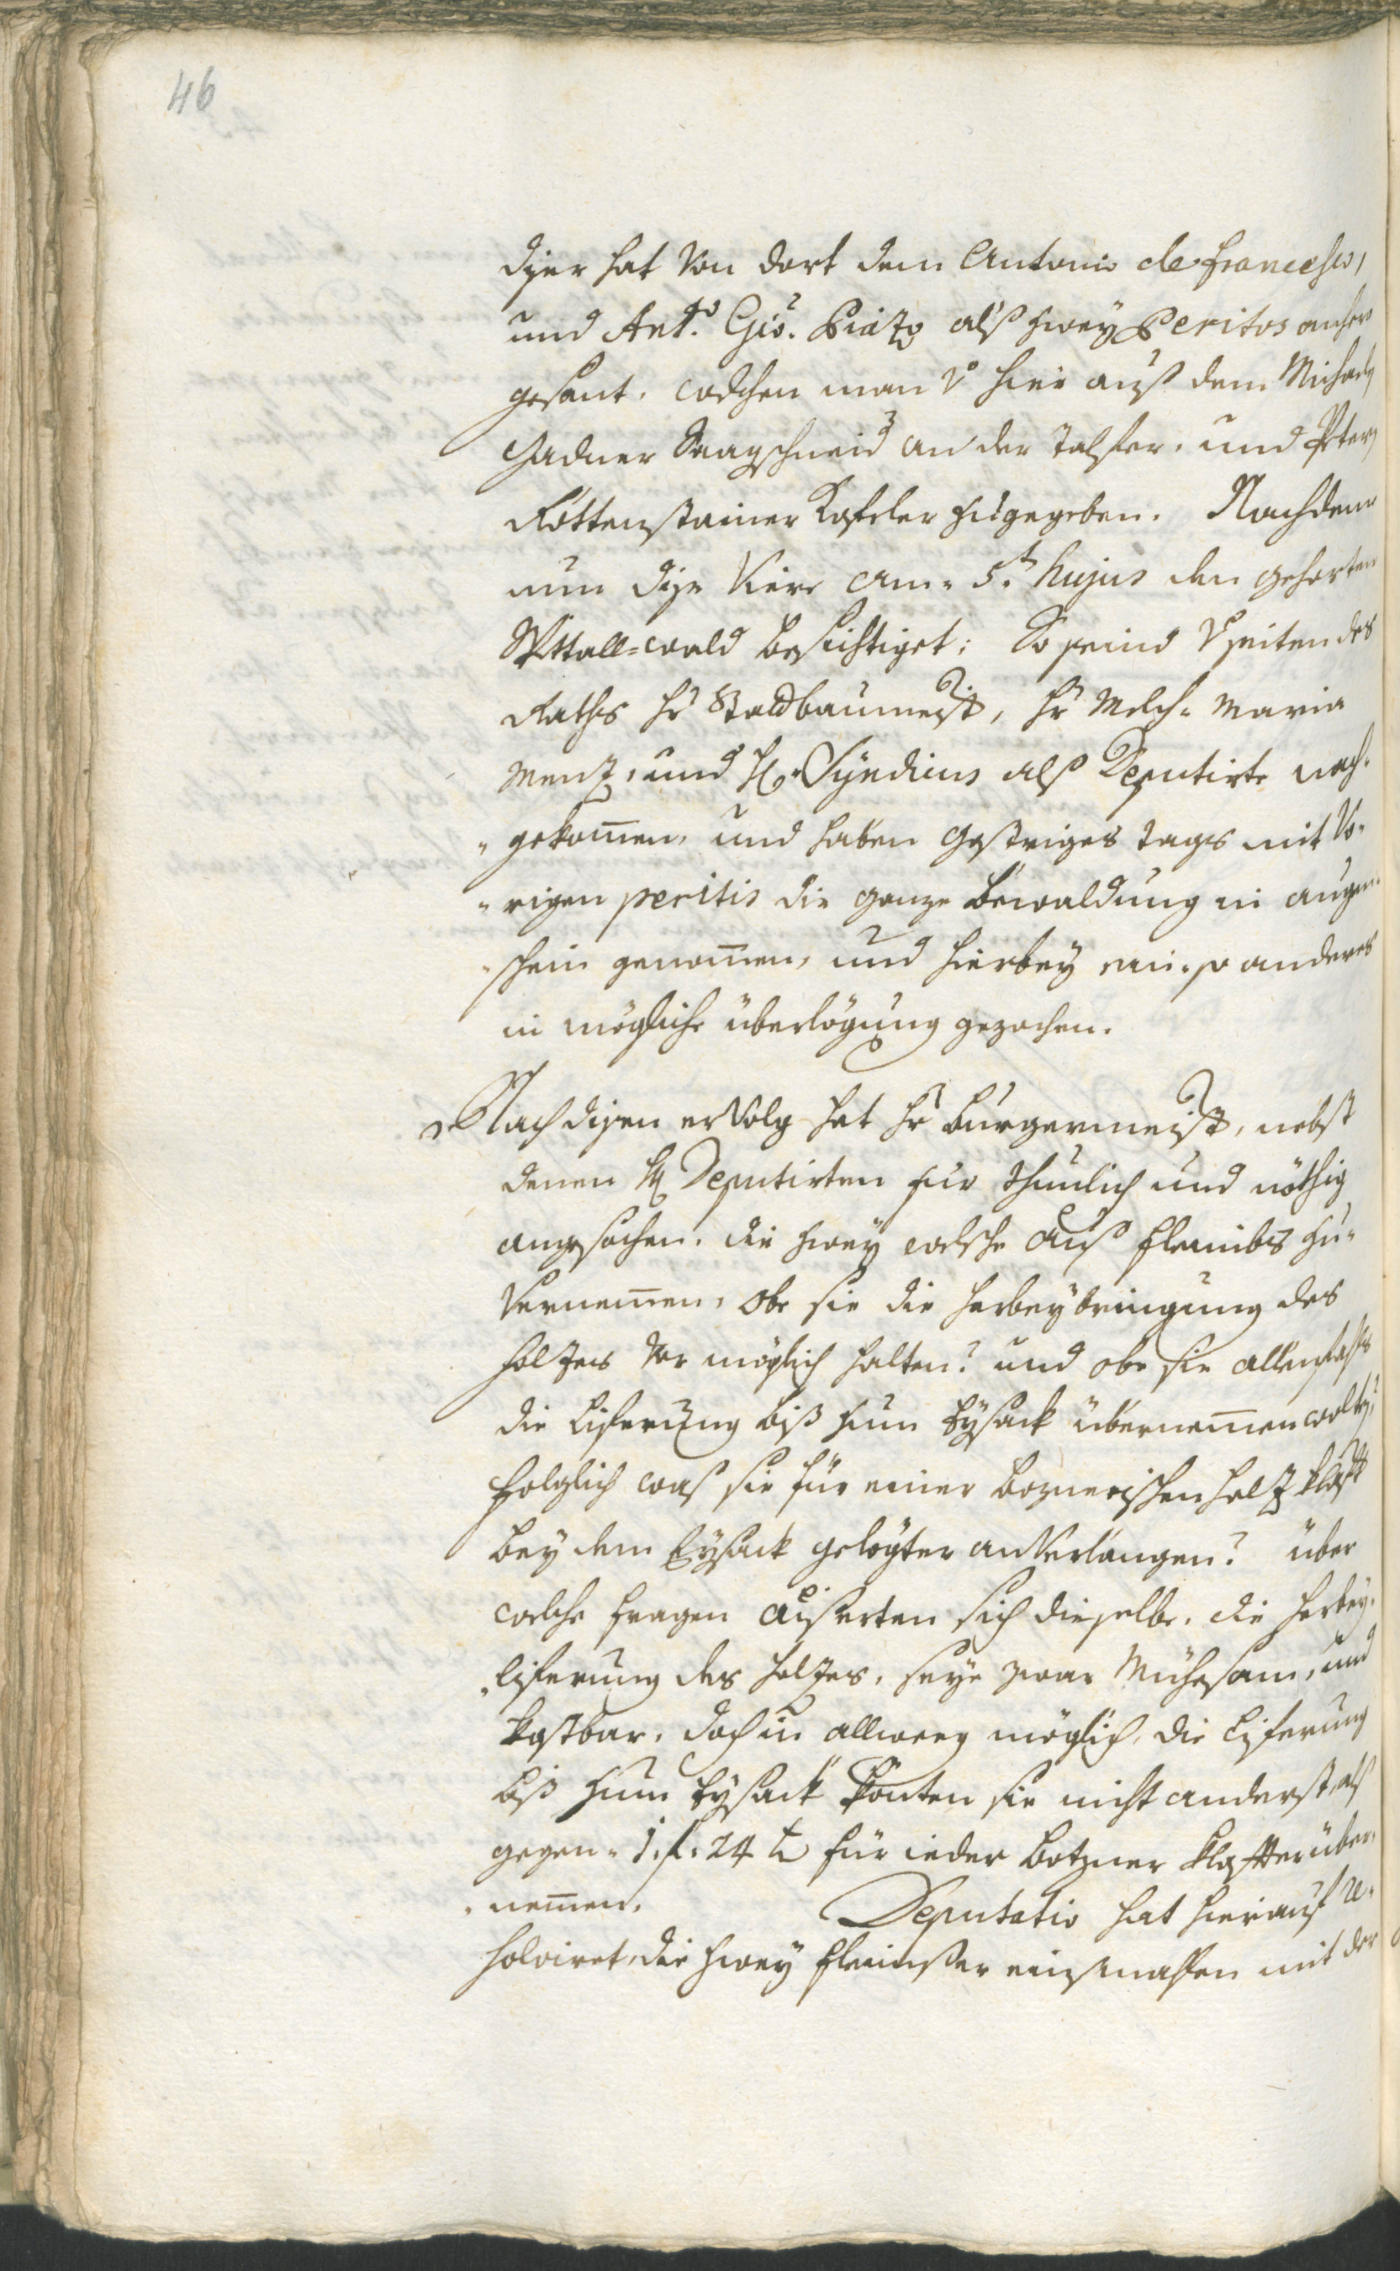 46
diser hat von dort dem Antonio de Francesco,
und Ant.o Gio. Piazo alß zwey Peritos anhero
gesant. welchen man v. hier auß dem Michael
Gadner Saagschneid an der Talfer. und Peter
Rottenstainer Kofeler zugegeben. Nachdeme
nun dise Viere am 5.t hujus den gehorten
Spittall-wald besichtiget: So seind seiten des
Raths Hr Stadtbaumeister, Hr Melch. Maria
Menz, und H. Syndicus als Deputirte nach-
gekomen, und haben gestriges tags mit Vo-
rigen peritis die ganze Bewaldung in augen-
schein genomen, und hierbey ain so anderes
in mögliche überlögung gezochen.
Nach disen erVolg hat Hr burgermeister, nebst
denen H. Deputirten für thunlich und nöthig
angesechen. die zwey welsche auß fleimbs zu-
vernemen, obe sie die herbeybringung des
holzes vor möglich halten? und obe sie allenfahls
die Liferung biß zum Eysack übernemen wolten?
folglich was sie für einer boznerischen holz klaffter
bey dem Eysack gelögter anVerlangen? über
welche fragen äuserten sich dieselbe. die herbey-
liferung des holzes. seye zwar Mühesam, und
kostbar. doch in allweeg möglich. die Liferung
biß zum Eysack könten sie nicht anderst als
gegen 1 f. 24 x für ieder botzner klaffter über-
nemen. Deputatio hat hierauf re-
solviret, die zwey fleimser einsmahlen mit der